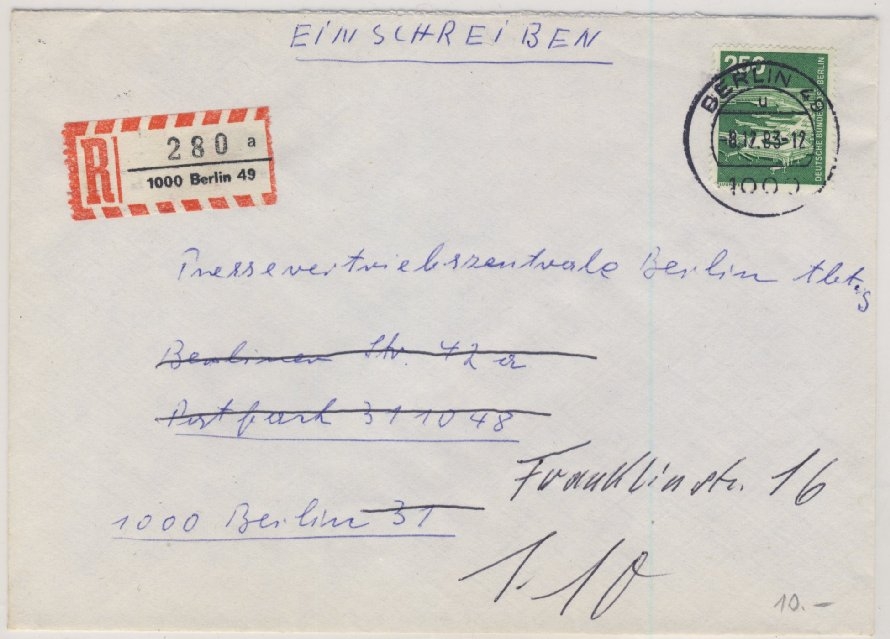 EINSCHREIBEN
250
DEUTSCHE BUNDESPOST BERLIN
BERLIN 49
u
-8.12.83-12
1000
R
280 a
1000 Berlin 49
Pressevertriebszentrale Berlin Abt.
Berliner Str. 42 a
Postfach 311048
Franklinstr. 16
1000 Berlin 31
1.10
10.-